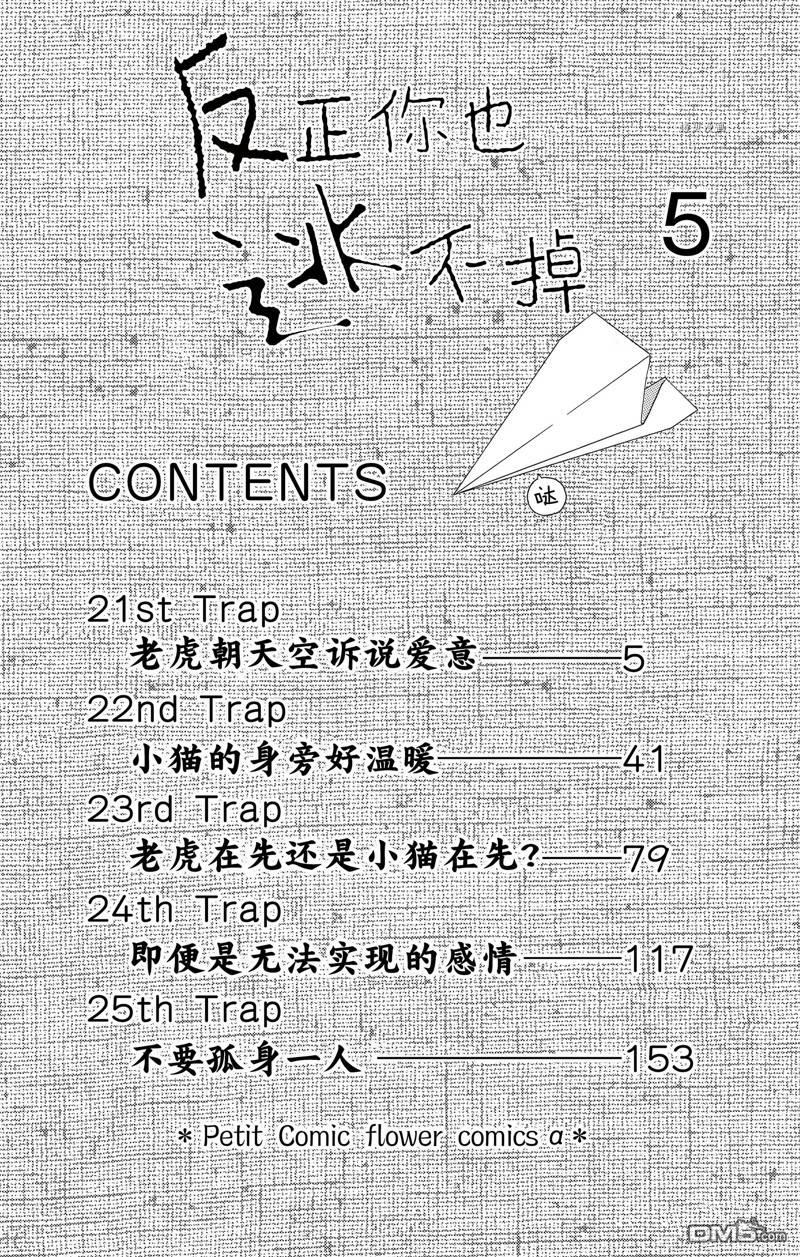 反正你也
逃不掉
5
CONTENTS
哒
21st Trap
老虎朝天空诉说爱意 5
22nd Trap
小猫的身旁好温暖 41
23rd Trap
老虎在先还是小猫在先? 79
24th Trap
即便是无法实现的感情 117
25th Trap
不要孤身一人 153
*Petit Comic flower comics α*
DM5.com